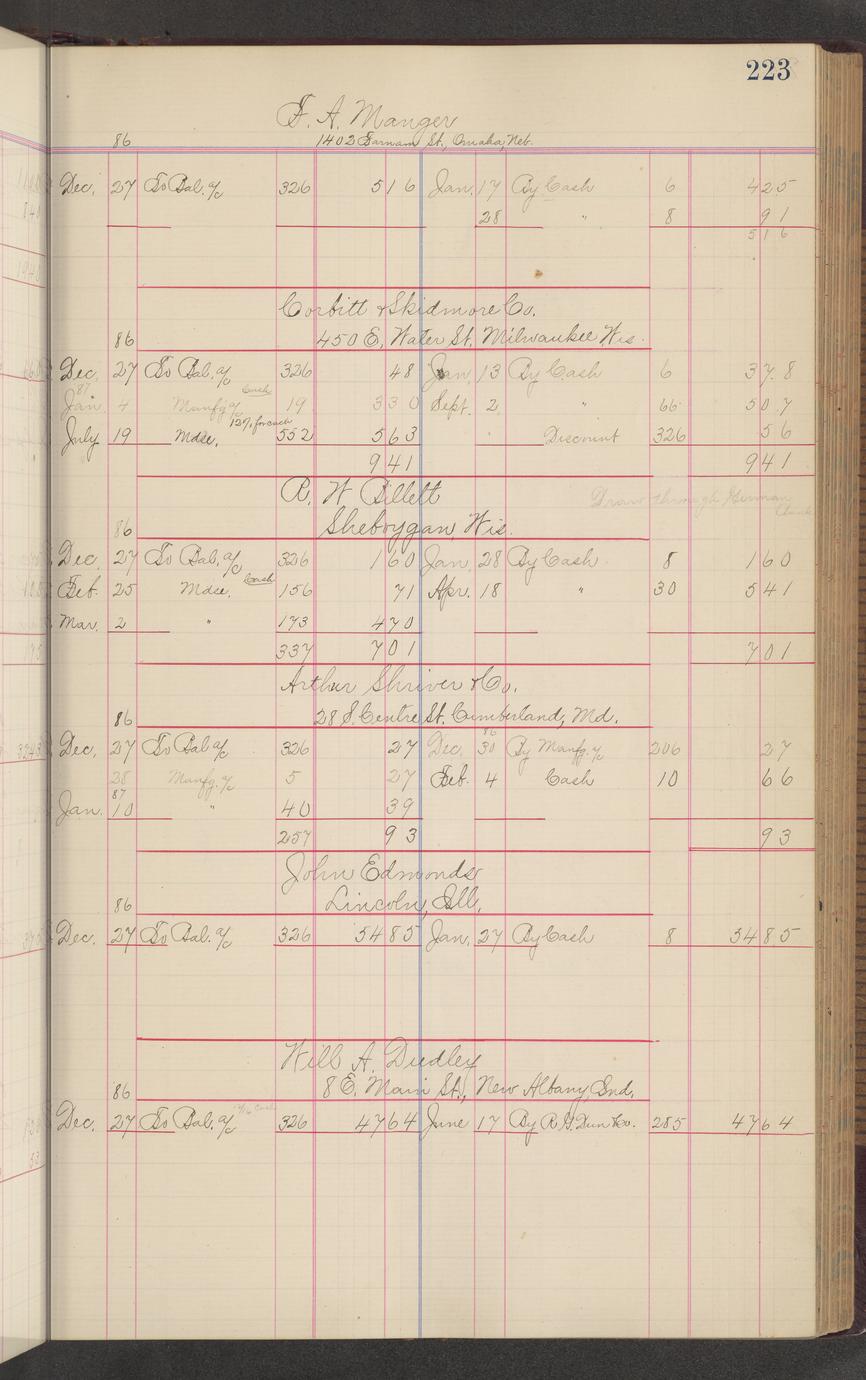 223
F. A. Manger
86 1402 Farnam St., Omaha, Neb.
Dec. 27 To Bal. a/c 326 516 Jan. 17 By Cash 6 425
28 " 8 91
516
Corbitt & Skidmore Co.
86 450 E. Water St. Milwaukee Wis.
Dec. 27 To Bal. a/c 326 48 Jan. 13 By Cash 6 378
87 Cash
Jan. 4 Manfg a/c 19 330 Sept. 2 " 66 507
12% for cash
July 19 Mdse. 552 563 " Discount 326 56
941 941
R. W Billett Draw through German
86 Sheboygan, Wis.
Dec. 27 To Bal. a/c 326 160 Jan. 28 By Cash 8 160
Feb. 25 Mdse. Cash 156 71 Apr. 18 " 30 541
Mar. 2 " 173 470
337 701 701
Arthur Shriver & Co.
86 28 S. Centre St. Cumberland, Md.
86
Dec. 27 To Bal a/c 326 27 Dec. 30 By Manfg. a/c 206 27
28 Manfg. a/c 5 27 Feb. 4 Cash 10 66
87
Jan. 10 " 40 39
257 93 93
John Edmonds
86 Lincoln, Ill.
Dec. 27 To Bal. a/c 326 5485 Jan. 27 By Cash 8 5485
Will A. Dudley
86 8 E. Main St., New Albany, Ind.
Dec. 27 To Bal. a/c 326 4764 June 17 By R. G. Dun & Co. 285 4764